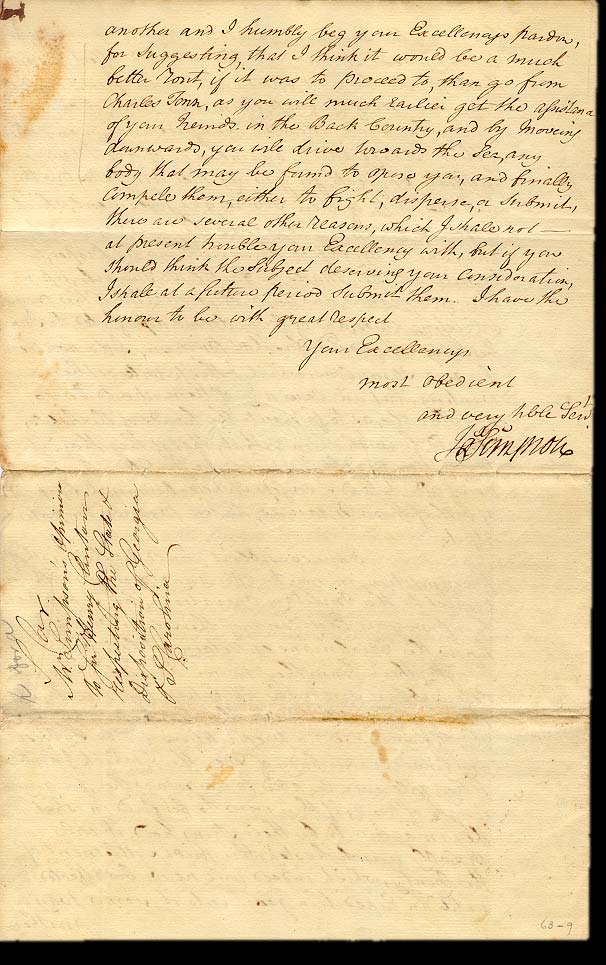 another and I humbly beg your Excellencys pardon,
for suggesting, that I think it would be a much
better rout, if it was to proceed to, than go from
Charles Town, as you will much earlier get the assistance
of your Friends in the Back Country, and by Moveing
downwards, you will drive towards the Sea, any
body that may be found to oppose you, and finally
Compele them, either to fight, disperse, or Submit,
there are several other reasons, which I shale not —
at present trouble your Excellency with, but if you
should think the Subject deserving your Consideration,
I shale at a future period Submit them. I have the
honour to be with great respect
Your Excellencys
most obedient
and very hble Servt
Jas Simpson
Mr Simpson's Opinion
to Sir Henry Clinton
respecting the State &
Disposition of Georgia
& So Carolina
63-9